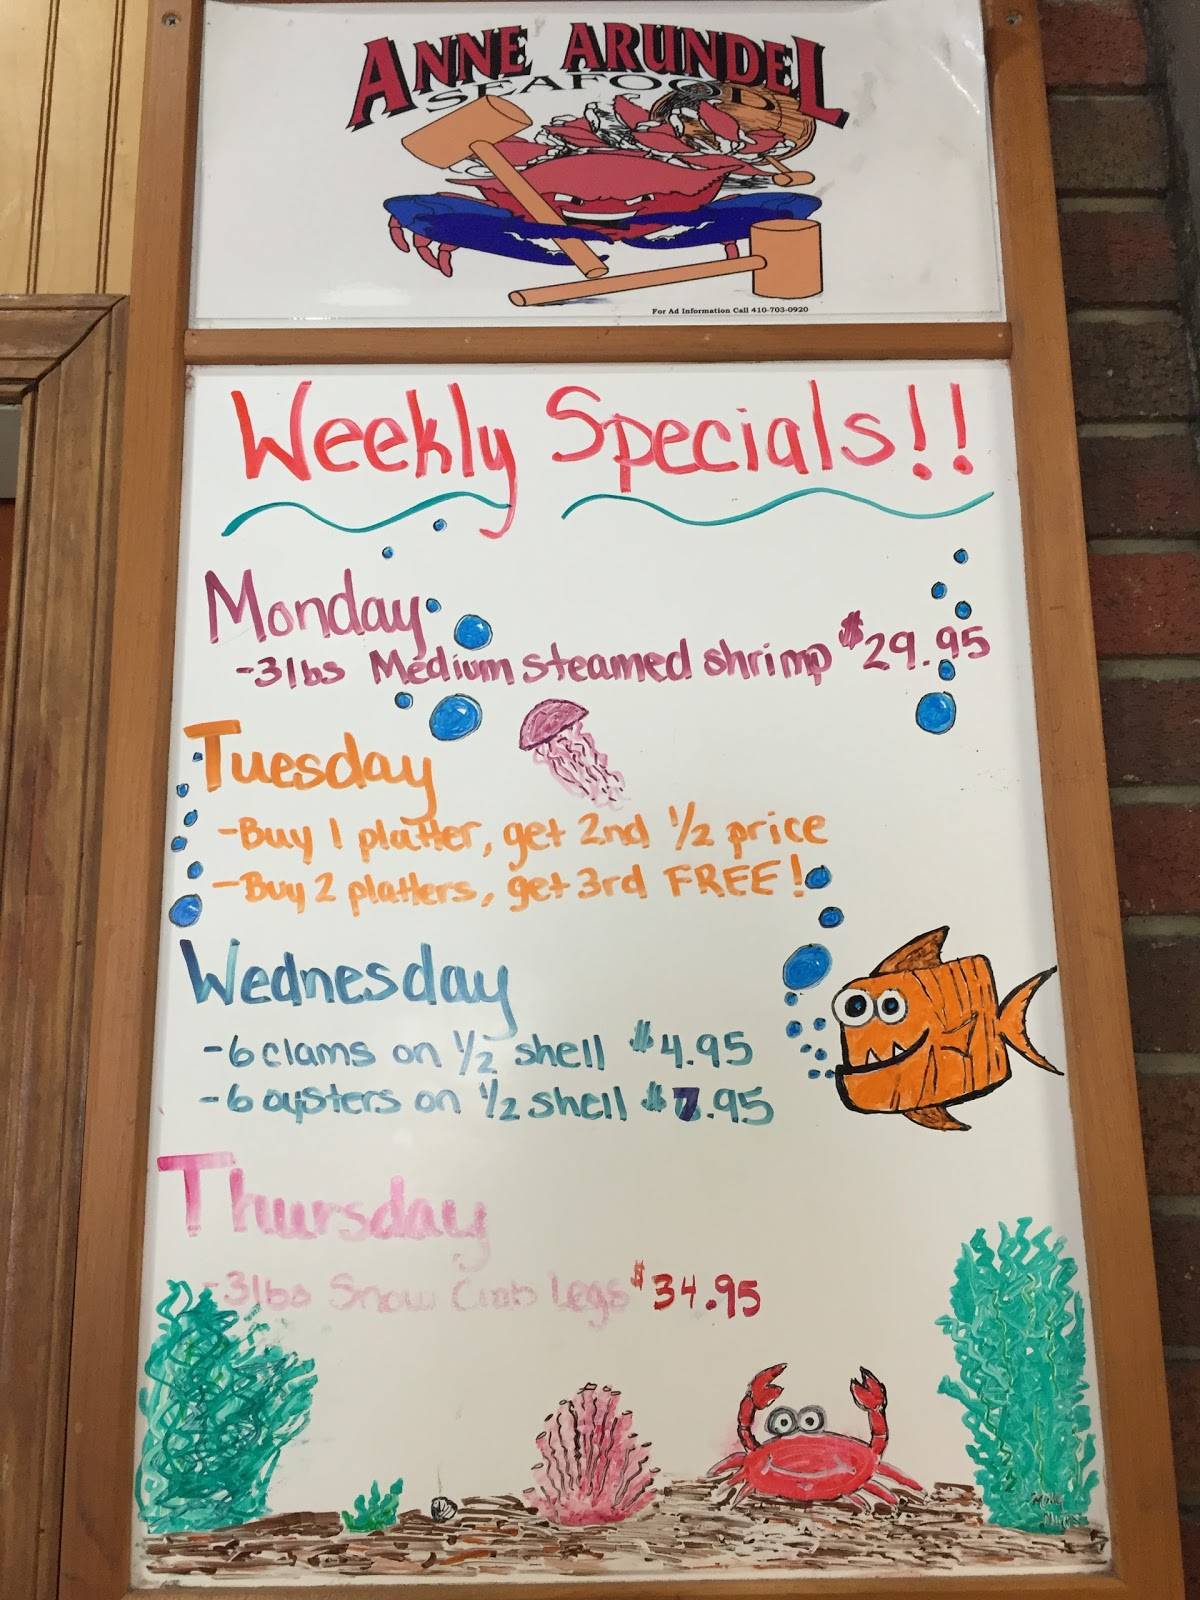 ANNE ARUNDEL
SEAFOOD
For Ad Information Call 410-703-0920
Weekly Specials!!
Monday
-3lbs Medium steamed shrimp $29.95
Tuesday
-Buy 1 platter, get 2nd 1/2 price
-Buy 2 platters, get 3rd FREE!
Wednesday
-6 clams on 1/2 shell $4.95
-6 oysters on 1/2 shell $7.95
Thursday
-3lbs Snow Crab Legs $34.95